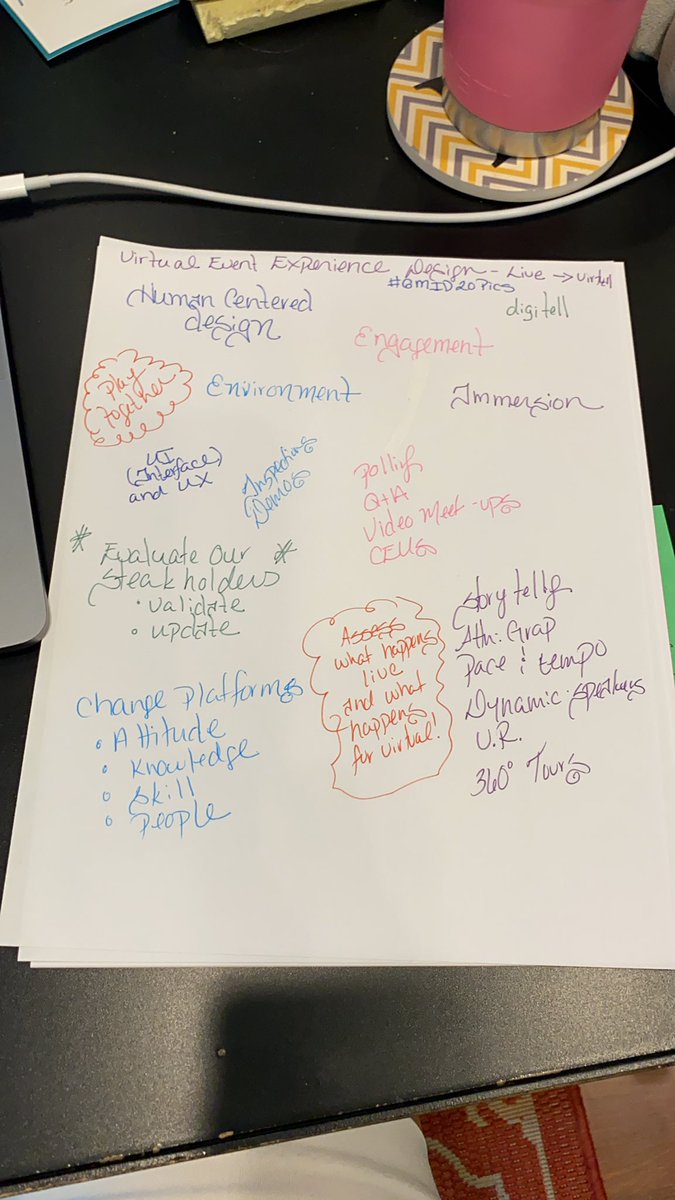 Virtual Event Experience Design - Live → Virtual
#GMID20Pics
Human Centered
design
digitell
Engagement
Play
together
Environment
Immersion
UI
(Interface)
and UX
Inspections
Demos
polling
Q+A
Video Meet-ups
CEUs
* Evaluate our *
Steak holders
• Validate
• update
Story telling
Ath: Grap
Pace & tempo
Dynamic speakers
V.R.
360° Tours
Assess
what happens
live
and what
happens
for virtual!
Change Platforms
• Attitude
• Knowledge
• Skill
• People